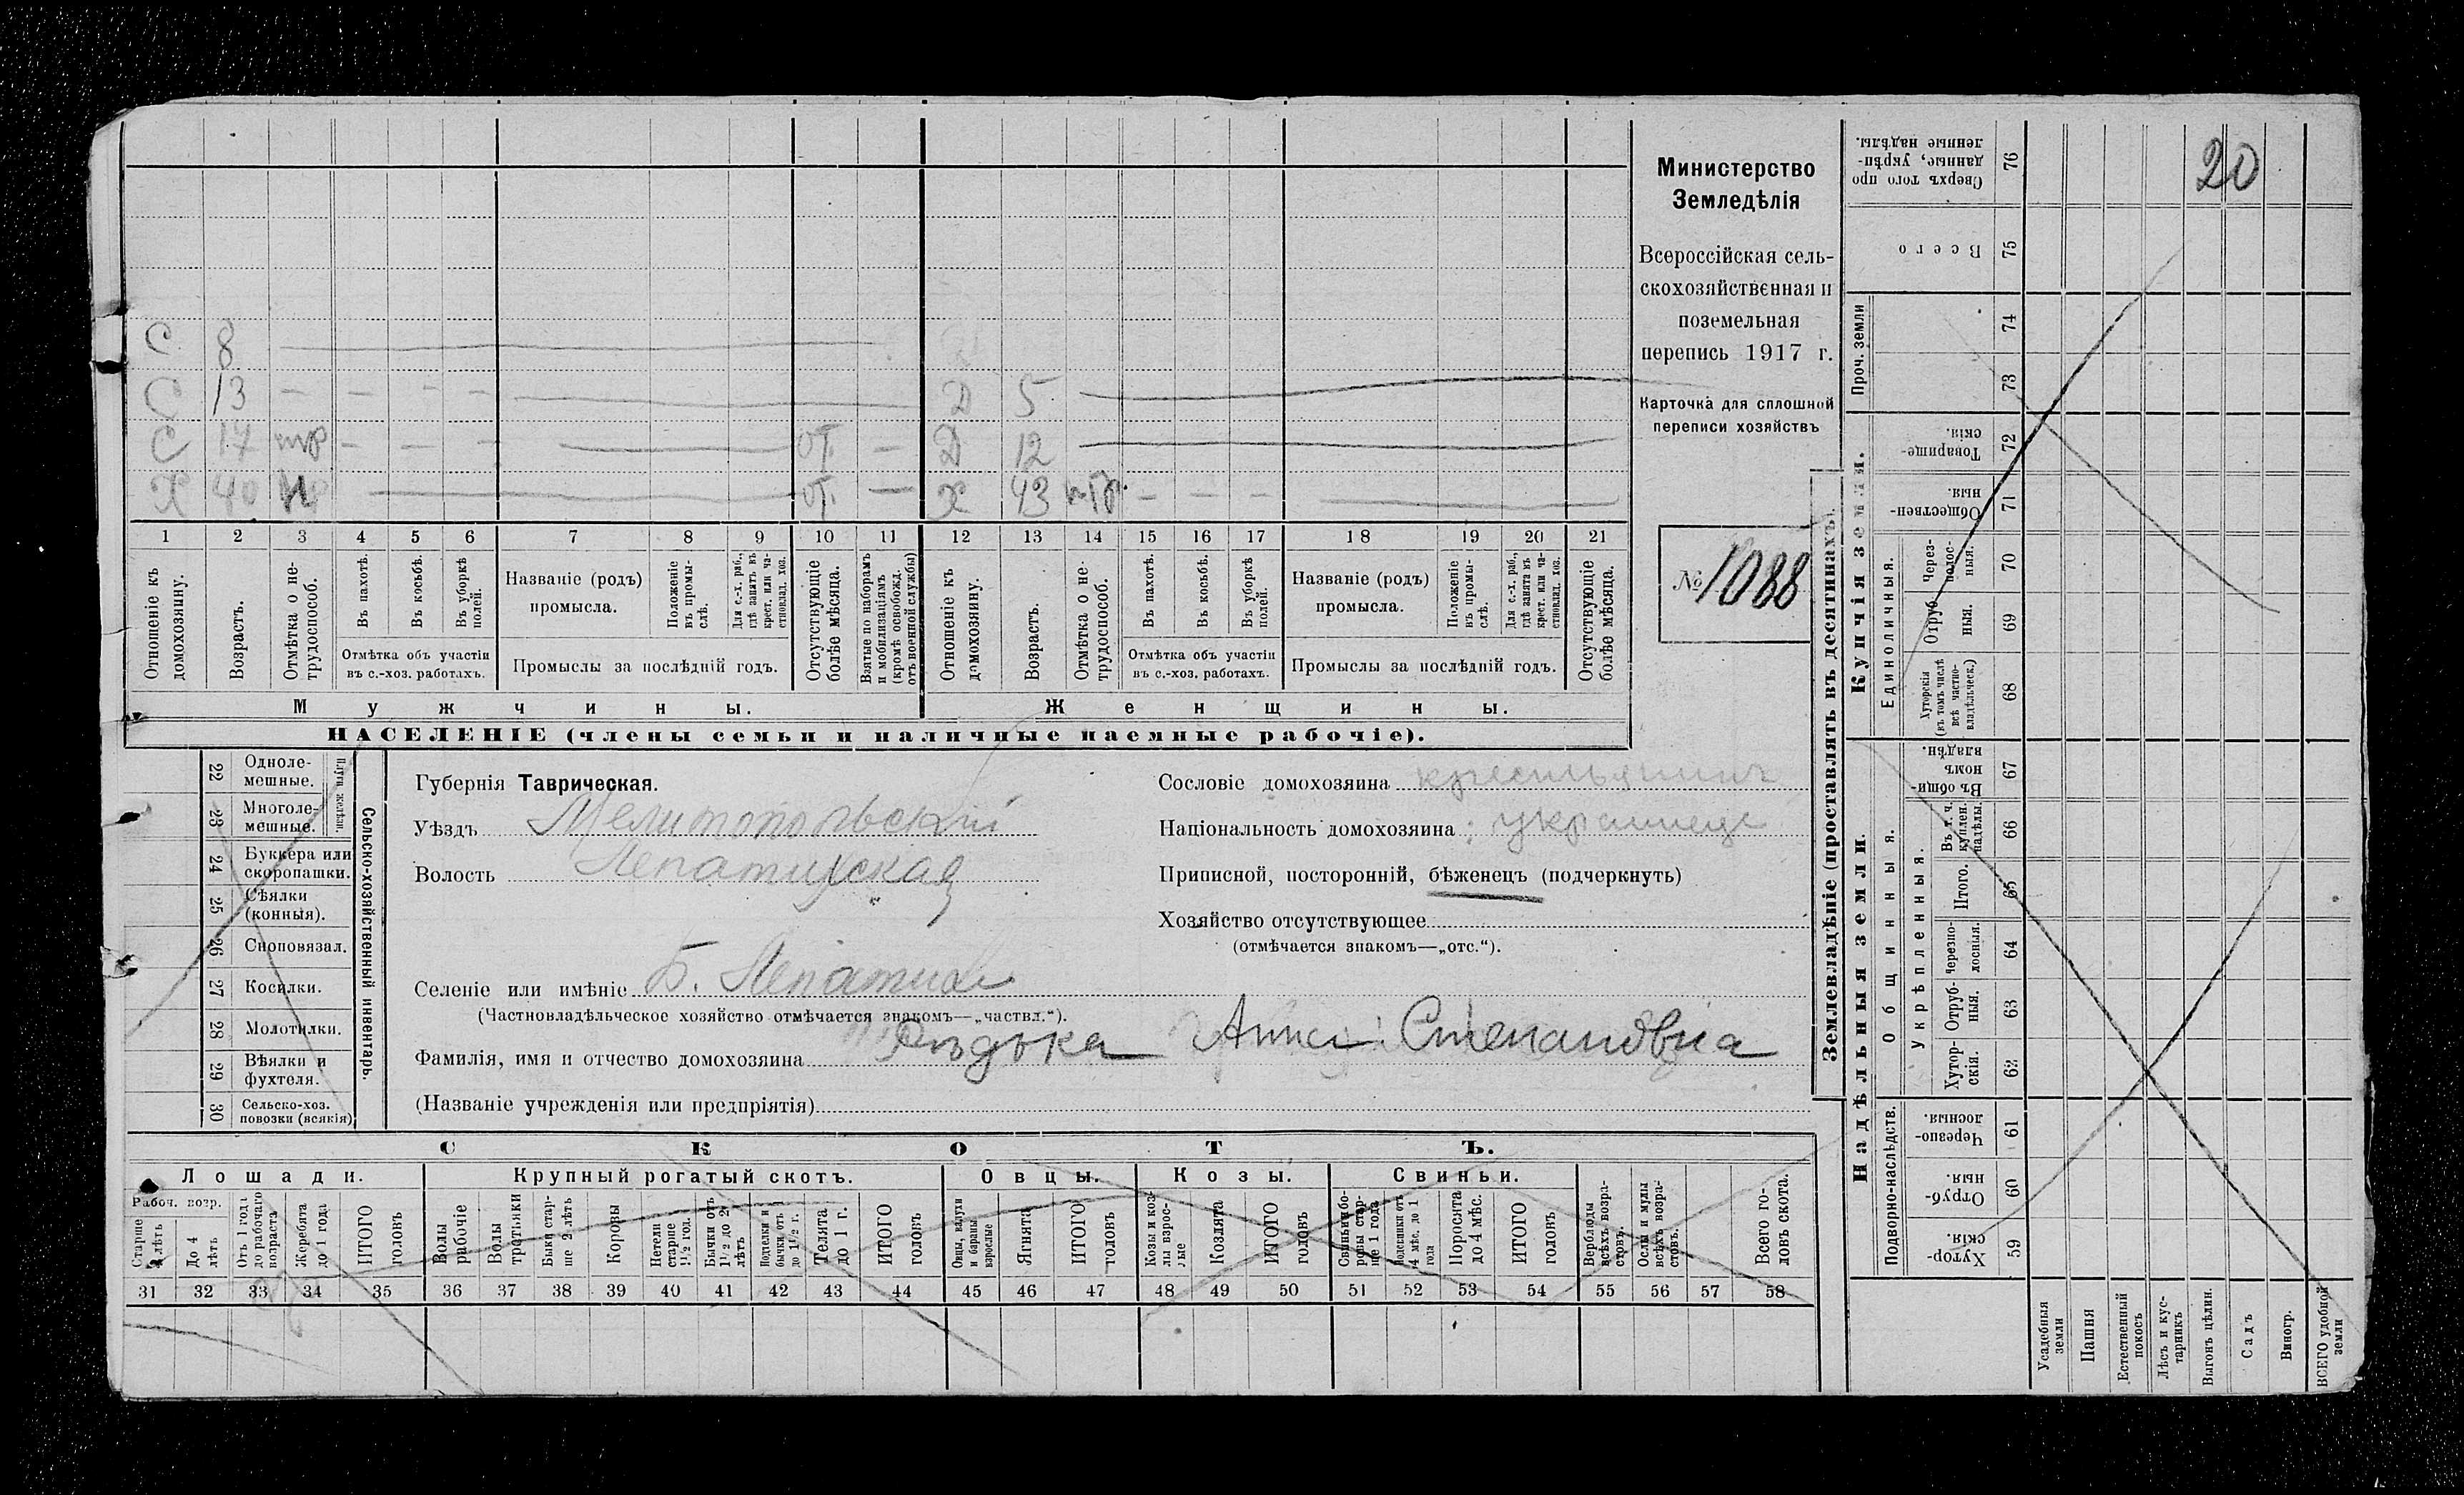 С 8
С 13 — — — — Д 5
С 17 — — — от. — Д 12
Х 40 от. — Х 43 — — —
1 2 3 4 5 6 7 8 9 10 11 12 13 14 15 16 17 18 19 20 21
Отношеніе къ домохозяину.
Возрастъ.
Отмѣтка о не-трудоспособ.
Въ пахотѣ.
Въ косьбѣ.
Въ уборкѣ полей.
Отмѣтка объ участіи въ с.-хоз. работахъ.
Названіе (родъ) промысла.
Положеніе въ промы-слѣ.
Для с.-х. раб., гдѣ занятъ въ крест. или ча-стновлад. хоз.
Промыслы за послѣдній годъ.
Отсутствующіе болѣе мѣсяца.
Взятые по наборамъ и мобилизаціямъ (кромѣ освобожд. отъ военной службы)
Отношеніе къ домохозяину.
Возрастъ.
Отмѣтка о не-трудоспособ.
Въ пахотѣ.
Въ косьбѣ.
Въ уборкѣ полей.
Отмѣтка объ участіи въ с.-хоз. работахъ.
Названіе (родъ) промысла.
Положеніе въ промы-слѣ.
Для с.-х. раб., гдѣ занята въ крест. или ча-стновлад. хоз.
Промыслы за послѣдній годъ.
Отсутствующіе болѣе мѣсяца.
Мужчины.
Женщины.
НАСЕЛЕНІЕ (члены семьи и наличные наемные рабочіе).
Министерство
Земледѣлія
Всероссійская сель-
скохозяйственная и
поземельная
перепись 1917 г.
Карточка для сплошной
переписи хозяйствъ
№ 1088
22 Одноле-мешные.
23 Многоле-мешные.
Плуги желѣзн.
24 Буккера или скоропашки.
25 Сѣялки (конныя).
26 Сноповязал.
27 Косилки.
28 Молотилки.
29 Вѣялки и фухтеля.
30 Сельско-хоз. повозки (всякія)
Сельско-хозяйственный инвентарь.
Губернія Таврическая.
Уѣздъ Мелитопольскій
Волость Лепатихская
Селеніе или имѣніе Б. Лепатиха
(Частновладѣльческое хозяйство отмѣчается знакомъ—„частвл.“).
Фамилія, имя и отчество домохозяина Рѣдька Анна Степановна
(Названіе учрежденія или предпріятія)
Сословіе домохозяина крестьянинъ
Національность домохозяина украинецъ
Приписной, посторонній, бѣженецъ (подчеркнуть)
Хозяйство отсутствующее
(отмѣчается знакомъ—„отс.“).
СКОТЪ.
Лошади. Крупный рогатый скотъ. Овцы. Козы. Свиньи.
Рабоч. возр.
Старше 4 лѣтъ
До 4 лѣтъ
Отъ 1 года до рабочаго возраста
Жеребята до 1 года
ИТОГО головъ
Волы рабочіе
Волы третьяки
Быки стар-ше 2 лѣтъ
Коровы
Нетели старше 1½ год.
Бычки отъ 1½ до 2 лѣтъ
Подтелки и бычки отъ 1 до 1½ г.
Телята до 1 г.
ИТОГО головъ
Овцы, валухи и бараны взрослые
Ягнята
ИТОГО головъ
Козы и коз-лы взрос-лые
Козлята
ИТОГО головъ
Свиньи и бо-ровы стар-ше 1 года
Подсвинки отъ 4 мѣс. до 1 года
Поросята до 4 мѣс.
ИТОГО головъ
Верблюды всѣхъ возра-стовъ.
Ослы и мулы всѣхъ возра-стовъ.
Всего го-ловъ скота.
31 32 33 34 35 36 37 38 39 40 41 42 43 44 45 46 47 48 49 50 51 52 53 54 55 56 57 58
Землевладѣніе (проставлять въ десятинахъ).
Купчія земли.
Надѣльныя земли.
20
Сверхъ того про данные, укрѣп-ленные надѣлы. 76
Всего 75
Проч. земли
74
73
Товарище-скія. 72
Обществен-ныя. 71
Единоличныя.
Через-полос-ныя. 70
Отруб-ныя. 69
Хуторскія (въ томъ числѣ всѣ частно-владѣльческ.) 68
Въ общи-номъ владѣн. 67
Общинныя.
Укрѣпленныя.
Въ т. ч. куплен. надѣлы. 66
Итого. 65
Черезпо-лосныя. 64
Отруб-ныя. 63
Хутор-скія. 62
Подворно-наслѣдств.
Черезпо-лосныя. 61
Отруб-ныя. 60
Хутор-скія. 59
Усадебныя земли
Пашня
Естественный покосъ
Лѣсъ и кус-тарникъ
Выгонъ цѣлин.
Садъ
Виногр.
ВСЕГО удобной земли